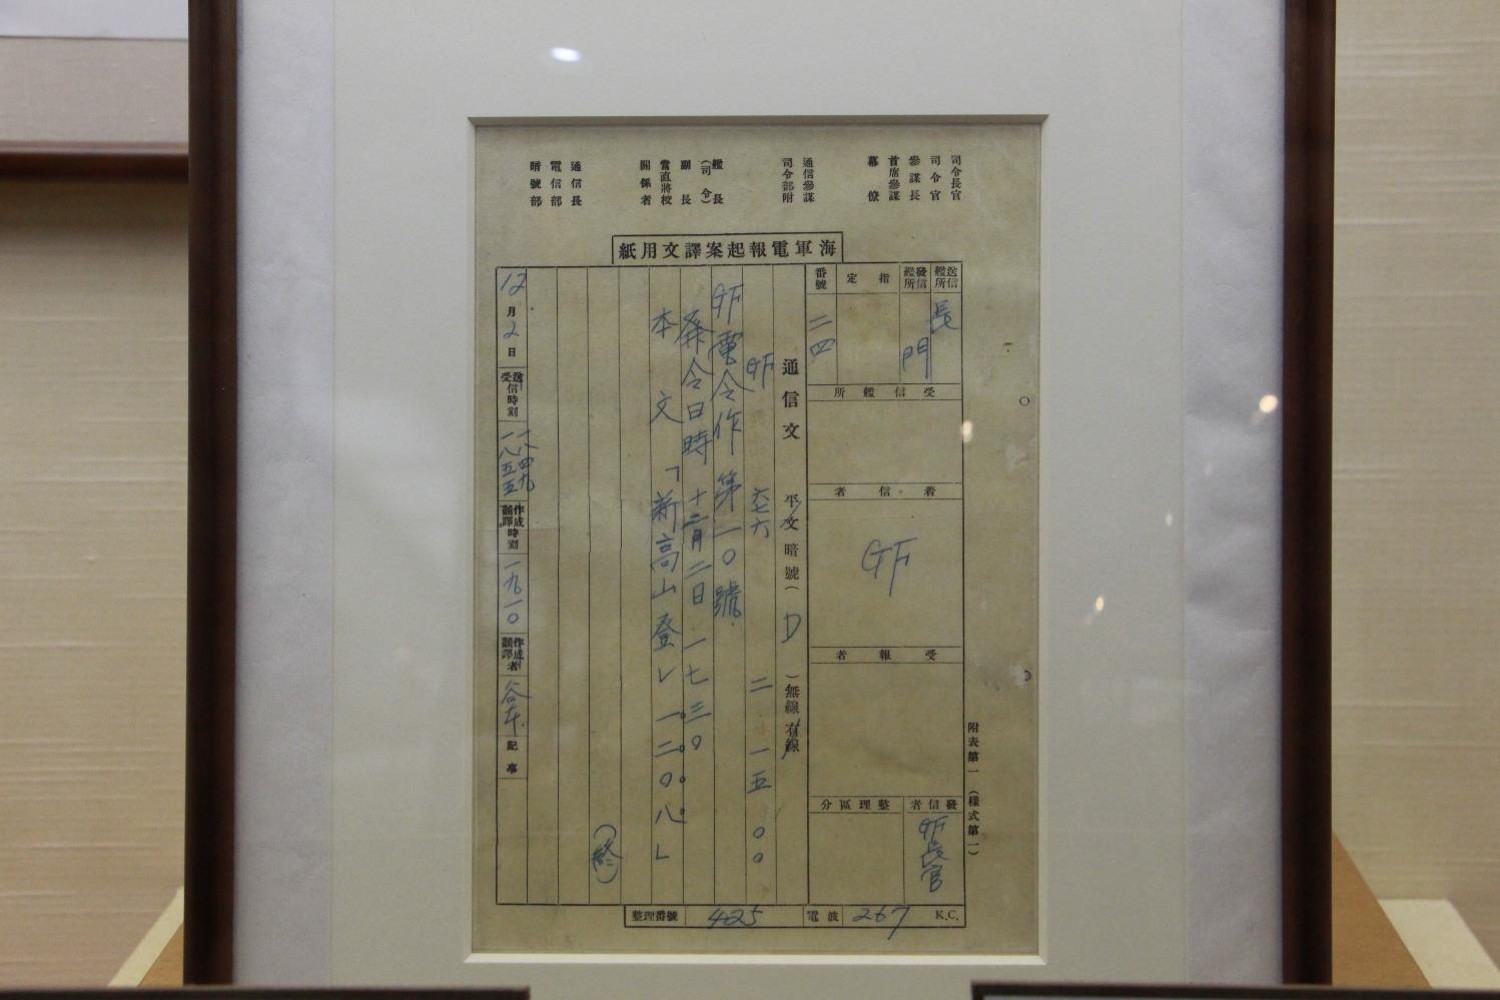 司令長官
司令官
參謀長
首席參謀
幕僚
通信參謀
司令部附
艦長
(司令)
副長
當直將校
關係者
通信長
電信部
暗號部
海軍電報起案譯文用紙
送信艦所
發信艦所
長門
指定
番號
二四
受信艦所
着信者
GF
受報者
發信者
GF長官
整理區分
附表第一(樣式第二)
通信文 平文 暗號( D )無線 有線
GF 六七六 二 一五〇〇
GF電令作第一〇號
發令日時 十二月二日 一七三〇
本文「新高山登レ一二〇八」
(終)
12月2日
送受信時刻
一八四九
一八五五
作成飜譯時刻
一九一〇
作成飜譯者
記事
整理番號 425
電波 267 K.C.